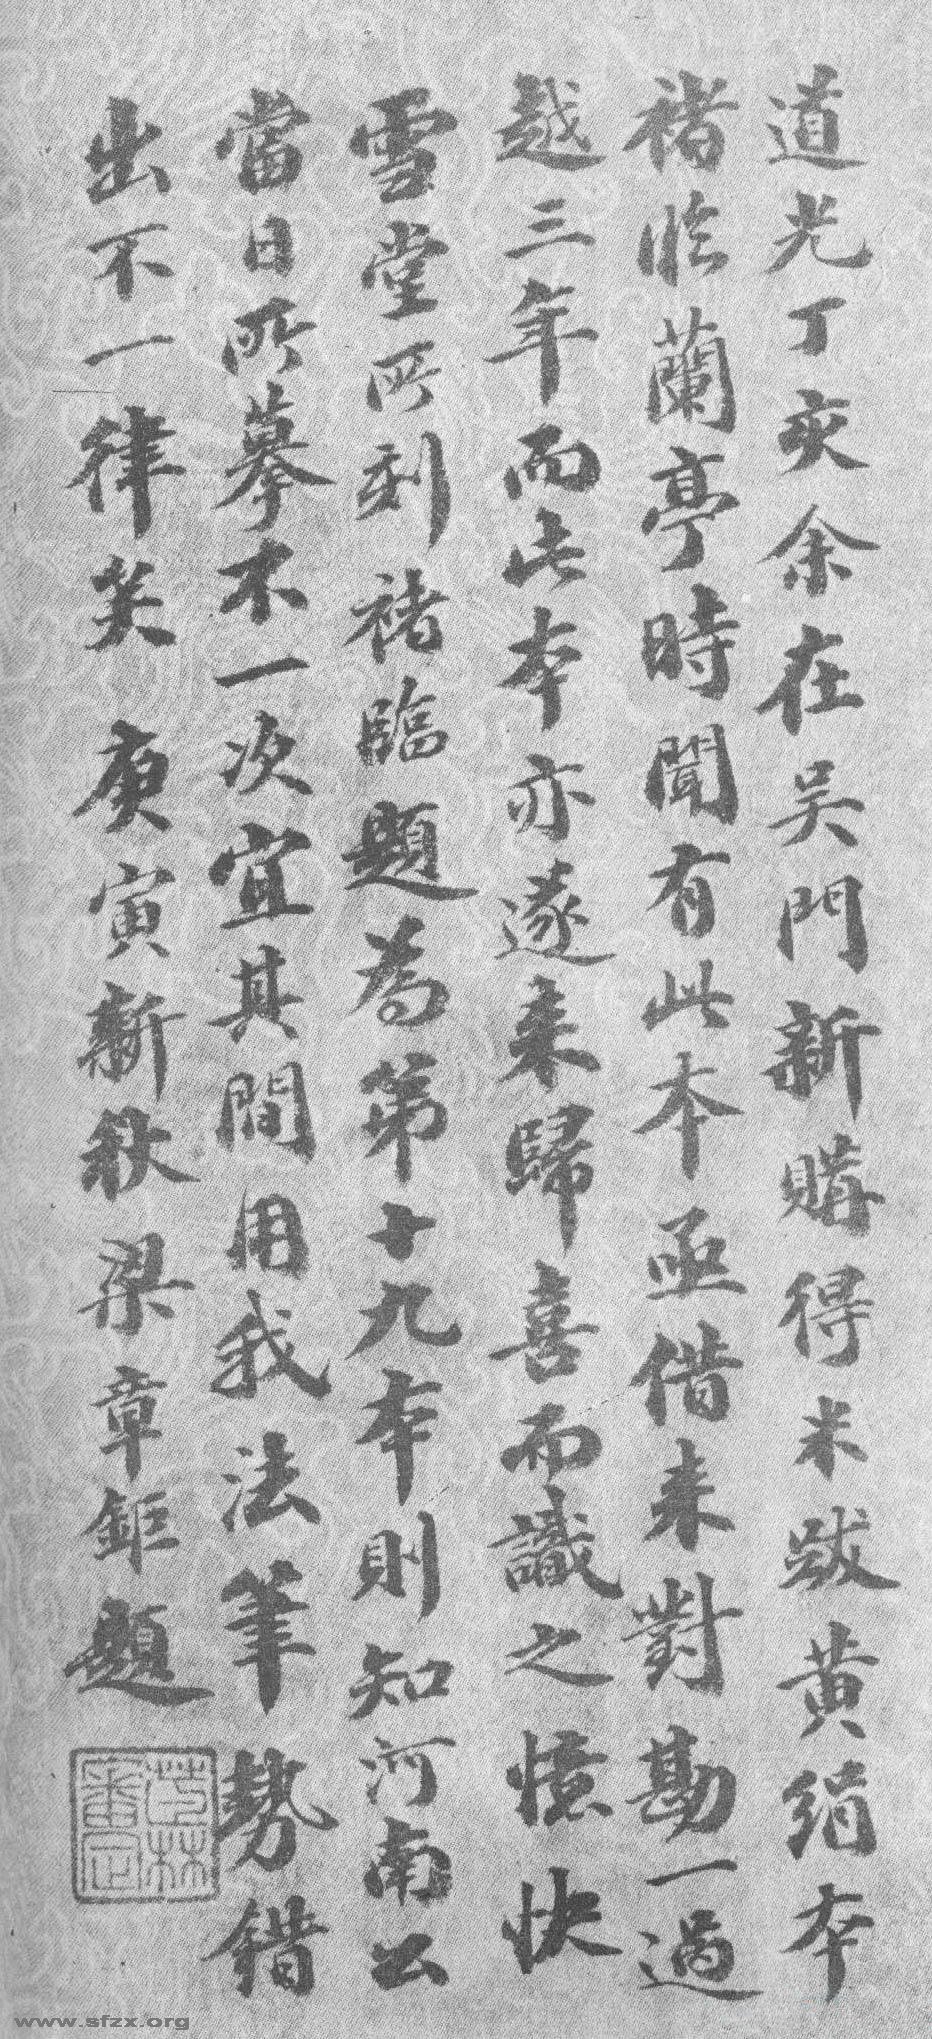 道光丁亥余在吴門新購得米跋黄絹本
褚临蘭亭時聞有此本亟借来對勘一過
越三年而此本亦遂来歸喜而識之憶快
雪堂所刻褚臨題為第十九本則知河南公
當日所摹不一次宜其間用我法筆勢錯
出不一律矣 庚寅新秋梁章鉅題
茝林審定
www.sfzx.org